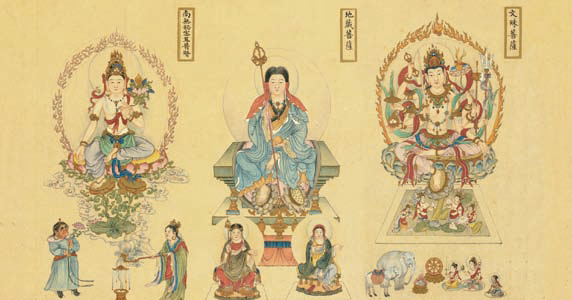 文殊菩薩
地藏菩薩
南無秘密